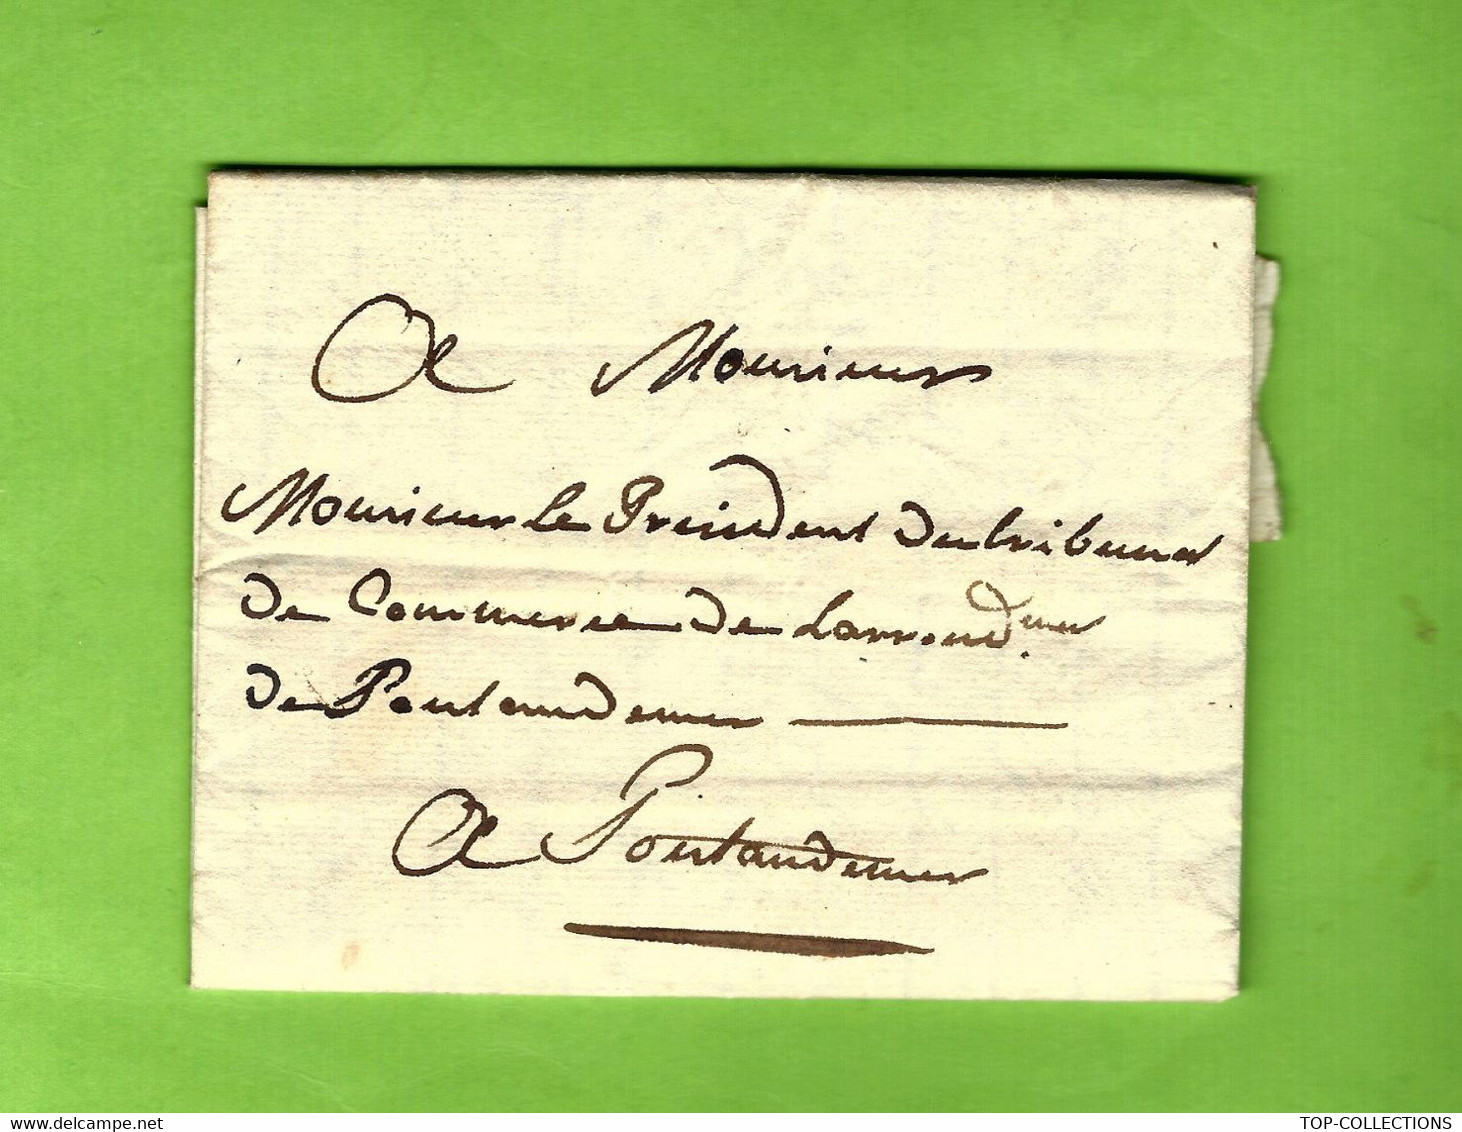 A Monsieur
Monsieur le President du tribunal
de Commerce de Larrond.ment
de Pontaudemer
A Pontaudemer
www.delcampe.net
TOP-COLLECTIONS